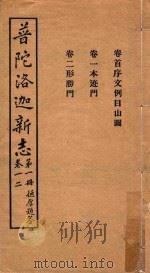 卷首序文例目山圖
卷一本迹門
卷二形勝門
普陀洛迦新志
第一冊
卷一二